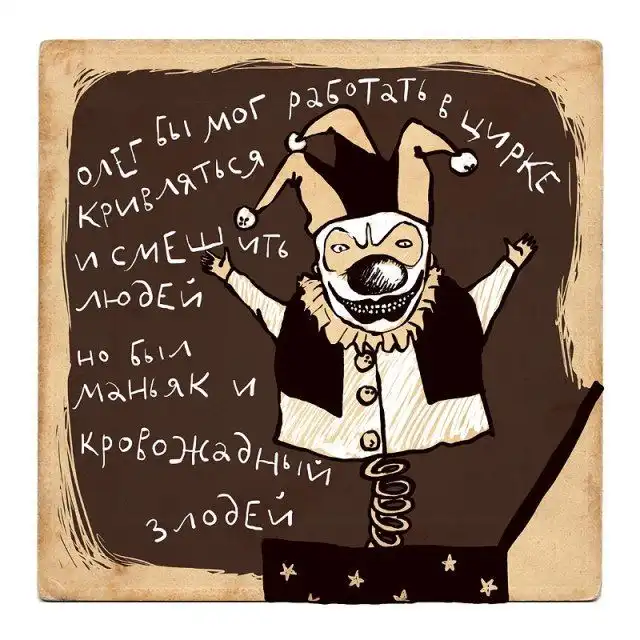 олег бы мог работать в цирке
кривляться
и смешить
людей
но был
маньяк и
кровожадный
злодей